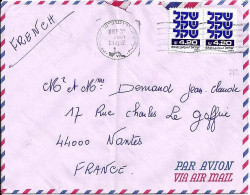 FRENCH
שקל שקל
שקל שקל
שקל שקל
4.20 4.20
Mr et Mme Demand Jean-Claude
17 Rue Charles Le Goffic
44000 Nantes
FRANCE
PAR AVION
VIA AIR MAIL